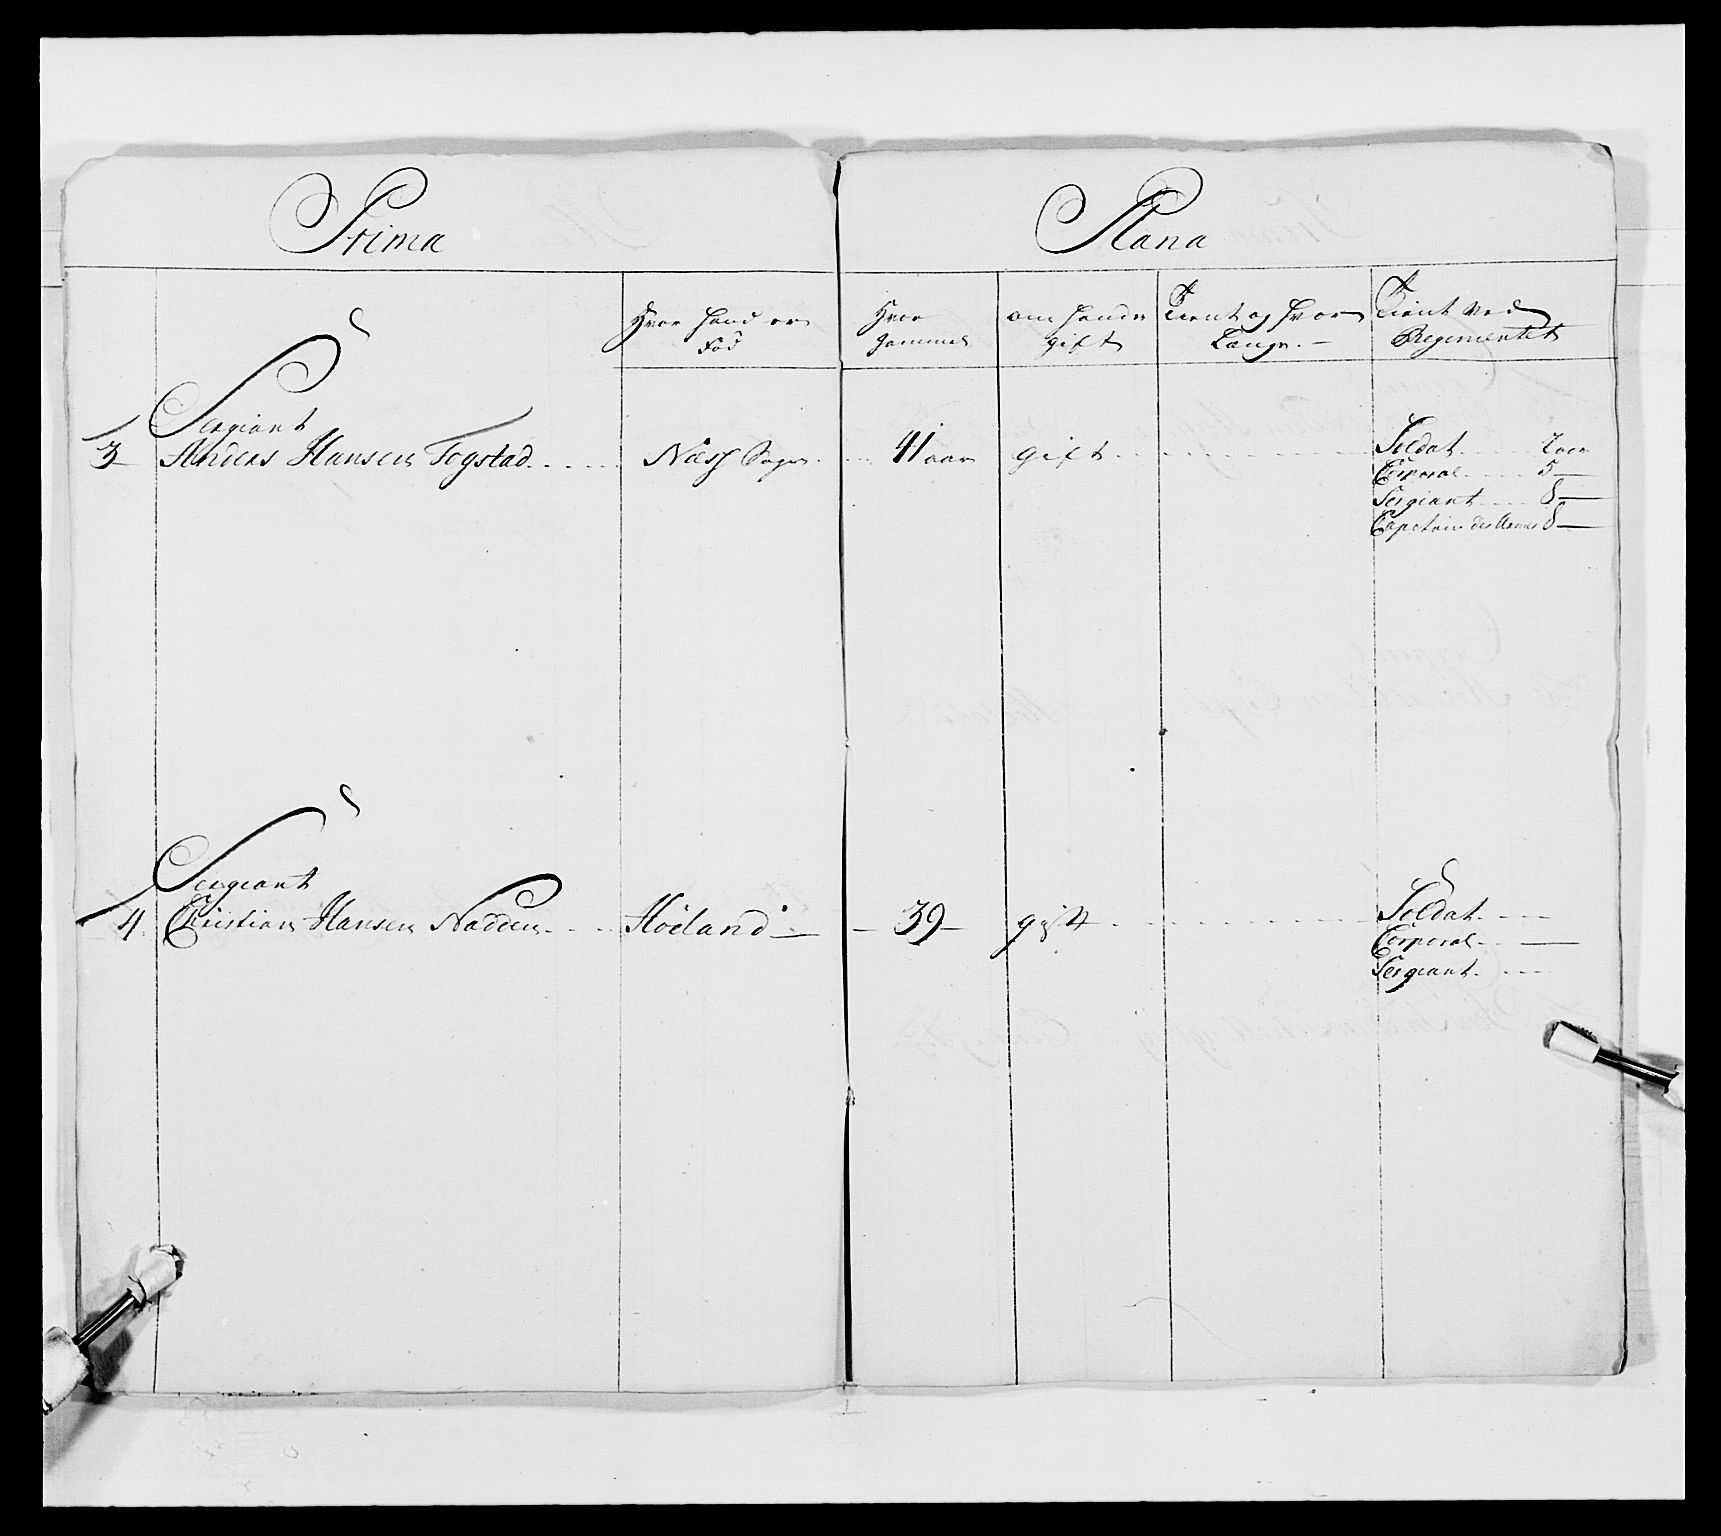 Prima
Plana
Hvor hand er
Fød
Hvor
gammel
om hand er
gift
Tient og hvor
Længe. —
Tient ved
Regimentet
Sergiant
3 Anders Hansen Togstad Næss Sogn 41 aar gift Soldat 7 aar
Corporal 5 —
Sergiant 8 —
Capetain des Armes 8 —
Sergeant
4 Christian Hansen Nadden Höeland — 39 — gift Soldat
Corporal —
Sergeant